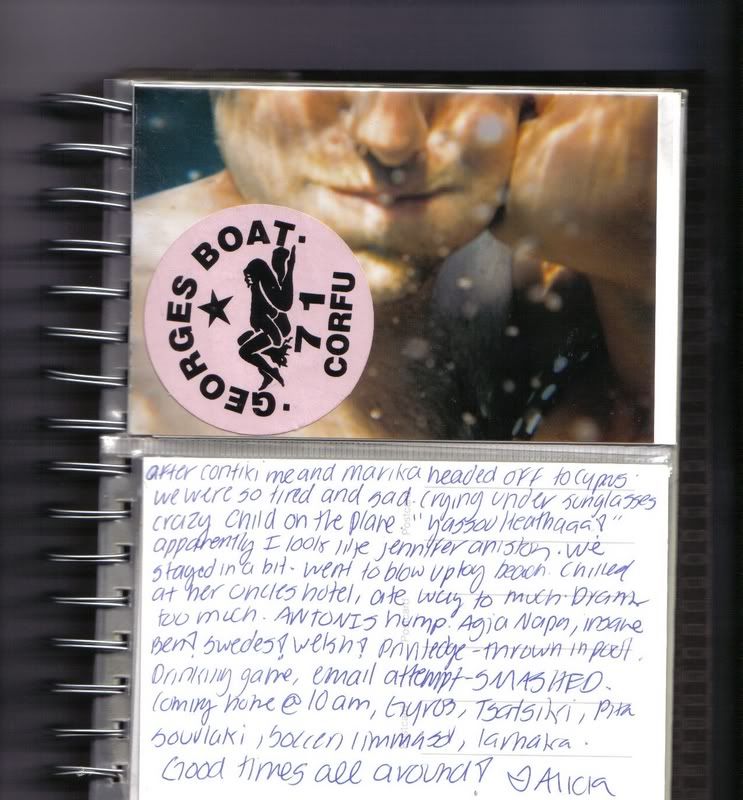 GEORGES BOAT.
71
CORFU
after contiki me and marika headed off to cyprus.
we were so tired and sad. crying under sunglasses
crazy child on the plane - "yassou Heathaaa!"
apparently I look like jennifer aniston. we
stayed in a bit - went to blow up toy beach. chilled
at her uncles hotel, ate way to much. Drank
too much. ANTONIS hump! Agia Napa, insane
Ben! Swedes! Welsh! Priviledge - thrown in pool.
Drinking game, email attempt - SMASHED.
Coming home @ 10 am, Gyros, Tsatsiki, Pita
Souvlaki, Soccer, limmasol, larnaka.
Good times all around! Alicia